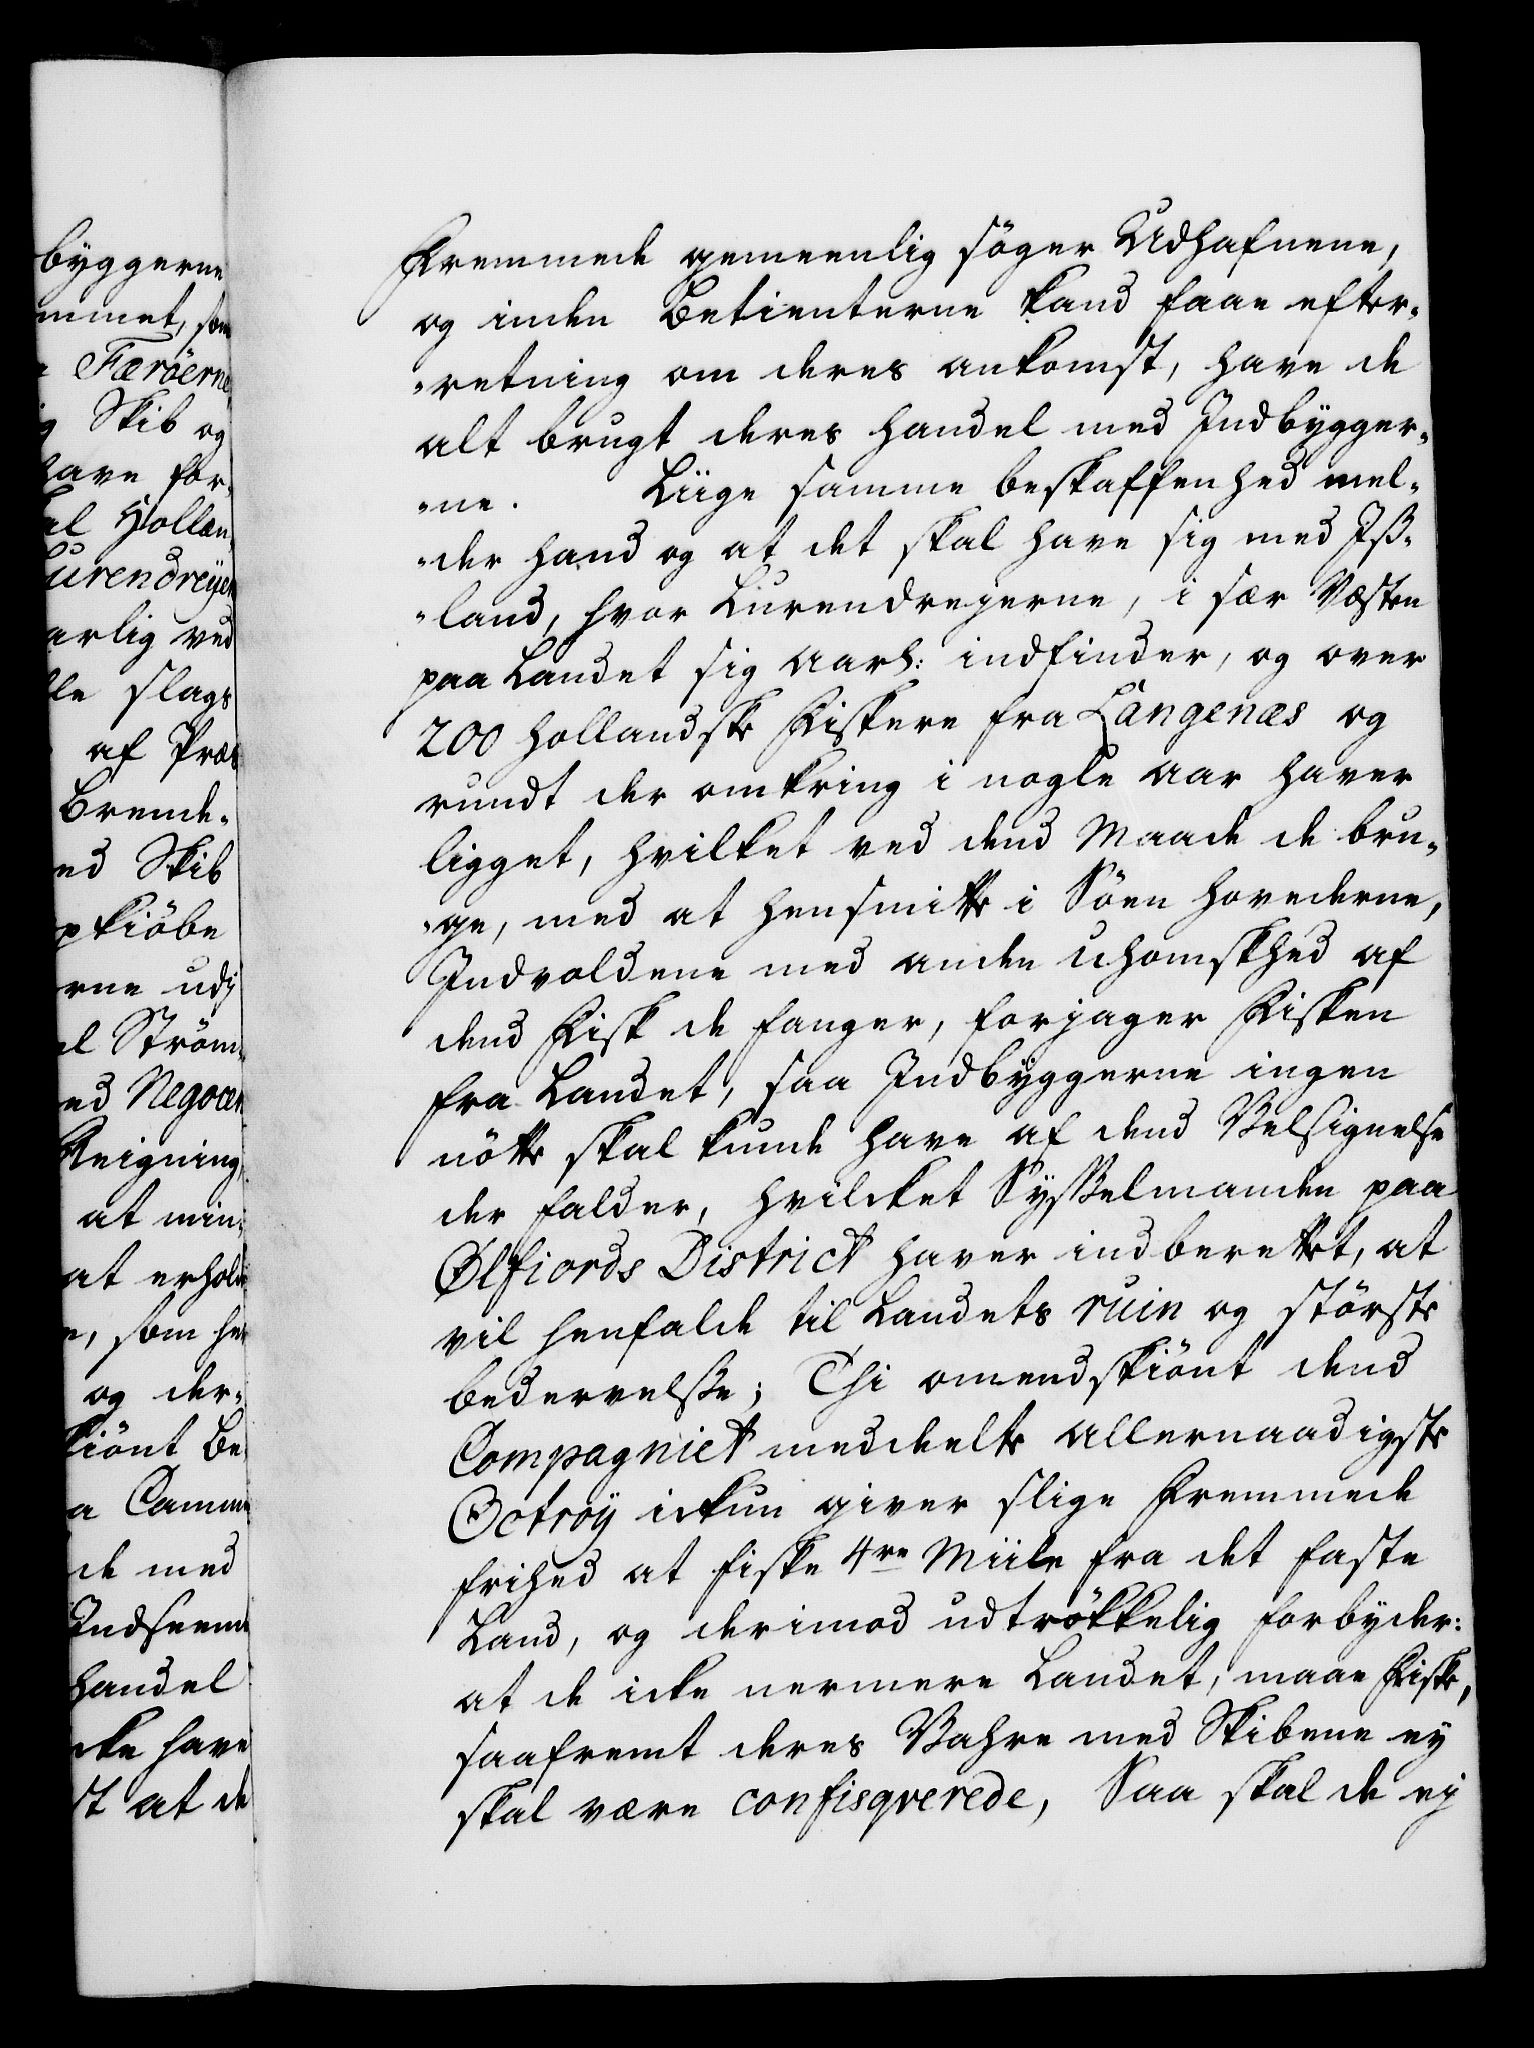 byggerne
mmet, som
Færöerne
g Skib og
have for,
al Hollæn,
Lurendreÿer
arlig ved
le slags
af Præs
Brende„
ed Skib
kiöbe
rne udj
el Ström„
ed Negocen
Reigning,
at min„
at erhold
e, som he
og der„
kiönt Be
a Camme
de med
Indseende
handel
cke have
st at de
Fremmede gemeenlig söger Udhafnene,
og inden Betienterne kand faae efter„
„retning om deres ankomst, have de
alt brugt deres handel med Indbygger„
„ne. Liige samme beskaffenhed mel„
„der hand og at det skal have sig med Iß„
„land, hvor Lurendrejerne, i sær Vesten
paa Landet sig aarl: indfinder, og over
200 hollandske Fiskere fra Langenæs og
rundt der omkring i nogle aar haver
ligget, hvilket ved dend Maade de bru„
„ge, med at hensmitte i Söen hovederne,
Indvoldene med anden uhomskhed af
dend Fisk de fanger, forjager Fisken
fra Landet, saa Indbÿggerne ingen
nötte skal kunde have af dend Velsignelse
der falder, hvilcket Sÿßelmanden paa
Ølfiords District haver indberettet, at
vil henfalde til Landets ruin og störste
bedervelße; Thi omendskiönt dend
Compagniet meddeelte allernaadigste
Octroÿ ickun giver slige Fremmede
frihed at fiske 4re Miile fra det faste
Land, og derimod udtrökkelig forbyder:
at de icke nermere Landet, maae Fiske,
saafremt deres Vahre med Skibene ey
skal være confisqverede, Saa skal de ej